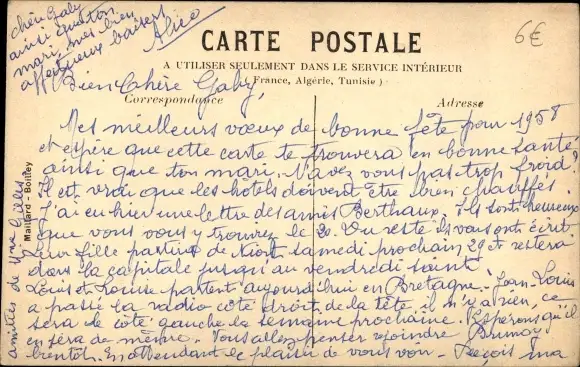 chère Gaby
ainsi que ton
mari, mes bien
affectueux baisers
Alice
6€
CARTE POSTALE
A UTILISER SEULEMENT DANS LE SERVICE INTÉRIEUR
(France, Algérie, Tunisie)
Correspondance
Adresse
Bien Chère Gaby,
Mes meilleurs vœux de bonne fête pour 1958
et espère que cette carte te trouvera en bonne santé
ainsi que ton mari. N'avez vous pas trop froid?
Il est vrai que les hôtels doivent être bien chauffés.
J'ai eu hier une lettre des amis Berthaux. Ils sont heureux
que vous vous y trouviez le 20. Du reste ils vous ont écrit.
leur fille partira de Niort samedi prochain 29 et restera
dans la capitale jusqu'au vendredi saint.
Louis et Louise partent aujourd'hui en Bretagne. Jean Louis
a passé la radio côté droit de la tête il n'y a rien, ce
sera le côté gauche la semaine prochaine. Espérons qu'il
en sera de même. Vous allez penser rejoindre Brunoy
bientôt. En attendant le plaisir de vous voir. Reçois ma
Maillard - Bouttey
amitiés de